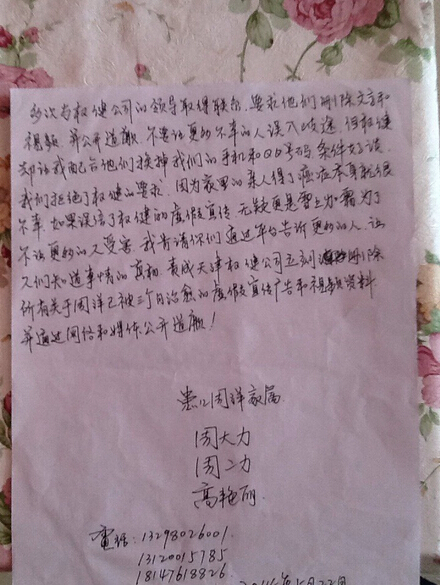 多次与权健公司的领导取得联系,要求他们删除文字和
视频,并公开道歉,不要让更多不幸的人误入歧途,但权健
却让我配合他们换掉我们的手机和QQ号码,条件好谈,
我们拒绝了权健的要求,因为家里的亲人得了癌症本身就很
不幸,如果误信了权健的虚假宣传,无疑更是雪上加霜,为了
不让更多的人受害,我肯请你们通过平台告诉更多的人,让
人们知道事情的真相,责成天津权健公司立刻删除
所有关于周洋已被三个月治愈的虚假宣传广告和视频资料
并通过网络和媒体公开道歉!
患儿周洋家属
周大力
周二力
高艳丽
电话:13298026001
13120015785
18147618826